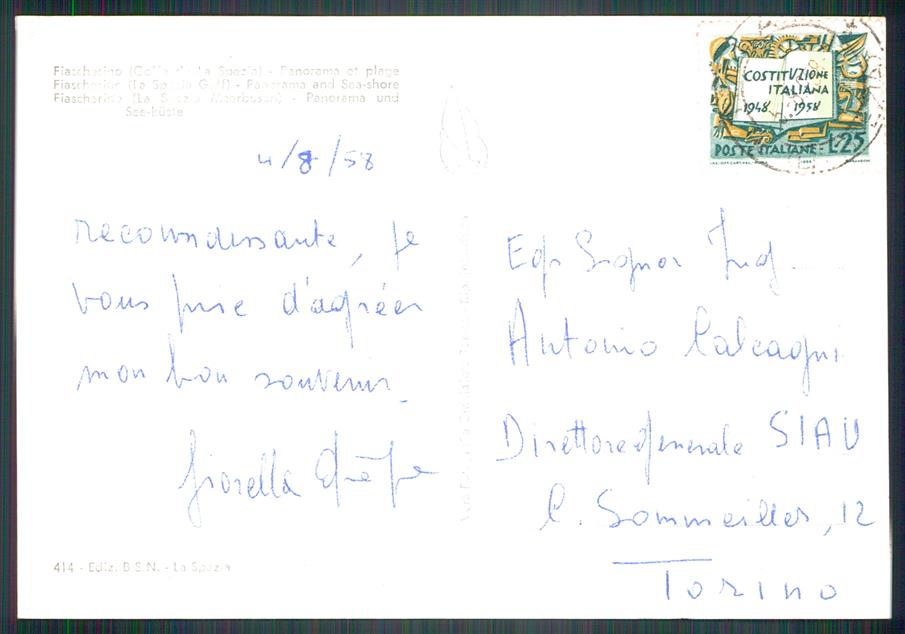 Fiascherino (Golfo de La Spezia) - Panorama et plage
Fiascherino (La Spezia Gulf) - Panorama and Sea-shore
Fiascherino (La Spezia Meerbusen) - Panorama und
See-Küste
4/8/58
reconnaissante, je
vous prie d'agréer
mon bon souvenir.
Fiorella
414 - Ediz. B.S.N. - La Spezia
COSTITVZIONE
ITALIANA
1948 1958
POSTE ITALIANE L.25
Egr Signor Ing.
Antonio Calcagni
Direttore generale SIAU
C. Sommeiller, 12
Torino